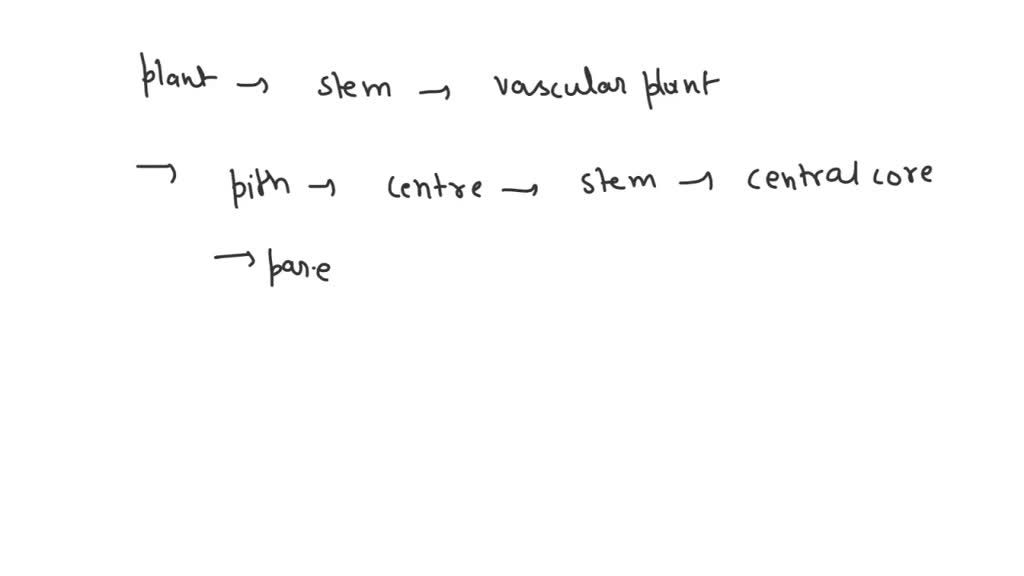 plant → stem → vascular plant
→ pith → centre → stem → central core
→ pare